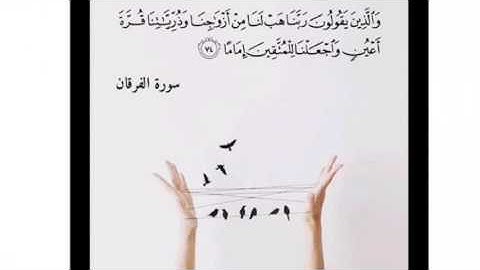 وَالَّذِينَ يَقُولُونَ رَبَّنَا هَبْ لَنَا مِنْ أَزْوَاجِنَا وَذُرِّيَّاتِنَا قُرَّةَ
أَعْيُنٍ وَاجْعَلْنَا لِلْمُتَّقِينَ إِمَامًا ٧٤
سورة الفرقان